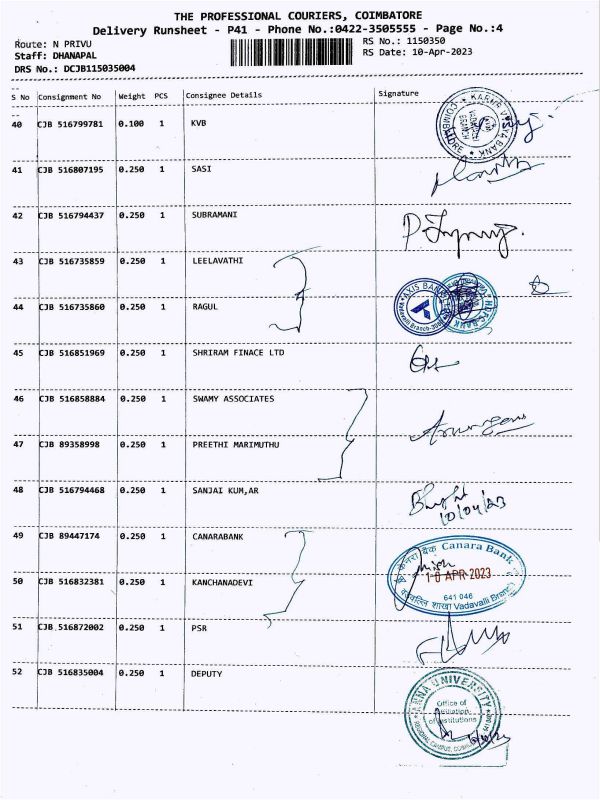 THE PROFESSIONAL COURIERS, COIMBATORE
Delivery Runsheet - P41 - Phone No.:0422-3505555 - Page No.:4
Route: N PRIVU RS No.: 1150350
Staff: DHANAPAL RS Date: 10-Apr-2023
DRS No.: DCJB115035004
S No Consignment No Weight PCS Consignee Details Signature
40 CJB 516799781 0.100 1 KVB
KARUR VYSYA BANK COIMBATORE
41 CJB 516807195 0.250 1 SASI
42 CJB 516794437 0.250 1 SUBRAMANI
43 CJB 516735859 0.250 1 LEELAVATHI
AXIS BANK
HDFC BANK
44 CJB 516735860 0.250 1 RAGUL
45 CJB 516851969 0.250 1 SHRIRAM FINACE LTD
46 CJB 516858884 0.250 1 SWAMY ASSOCIATES
47 CJB 89358998 0.250 1 PREETHI MARIMUTHU
48 CJB 516794468 0.250 1 SANJAI KUM,AR
10/04/23
49 CJB 89447174 0.250 1 CANARABANK
केनरा बैंक Canara Bank
10 APR 2023
50 CJB 516832381 0.250 1 KANCHANADEVI
641 046
शाखा Vadavalli Branch
51 CJB 516872002 0.250 1 PSR
52 CJB 516835004 0.250 1 DEPUTY
ANNA UNIVERSITY
Office of
Affiliation
of Institutions
REGIONAL CAMPUS,